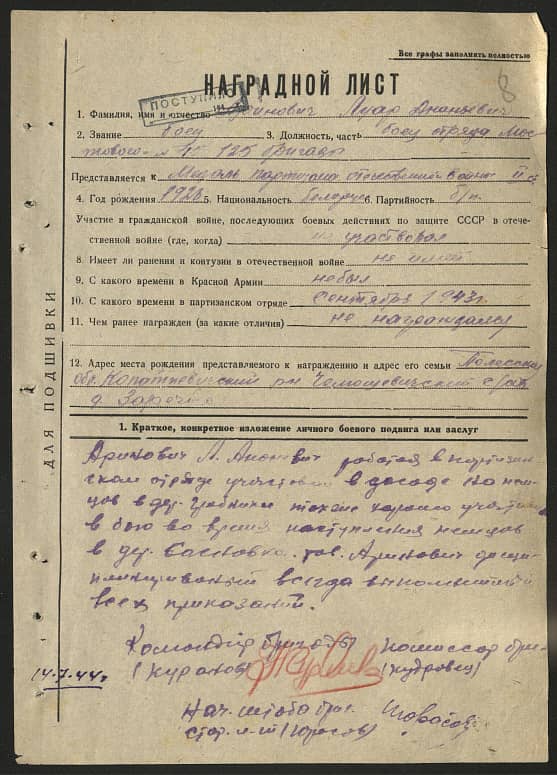 Все графы заполнять полностью
8
НАГРАДНОЙ ЛИСТ
ПОСТУПИЛО
1. Фамилия, имя и отчество Ананьевич
2. Звание боец 3. Должность, часть боец отряда
125 бригады
Представляется к Медаль партизана отечественной войны II ст
4. Год рождения 5. Национальность белорус 6. Партийность б/п
Участие в гражданской войне, последующих боевых действиях по защите СССР в отече-
ственной войне (где, когда) участвовал
8. Имеет ли ранения и контузии в отечественной войне не имеет
9. С какого времени в Красной Армии не был
10. С какого времени в партизанском отряде сентября 1943 г.
11. Чем ранее награжден (за какие отличия) не награждался
12. Адрес места рождения представляемого к награждению и адрес его семьи Полесская
обл. Копаткевичский рн
д. Заречье
ДЛЯ ПОДШИВКИ
1. Краткое, конкретное изложение личного боевого подвига или заслуг
Аринович работая в партизан
ском отряде участвовал в засаде на нем
цов в дер. также хорошо
в бою во время наступления немцов
в дер. тов. Аринович дисци
плинированый всегда
всех приказаний.
Командир бригады комиссар
14.7.44г.
Нач. штаба бриг.